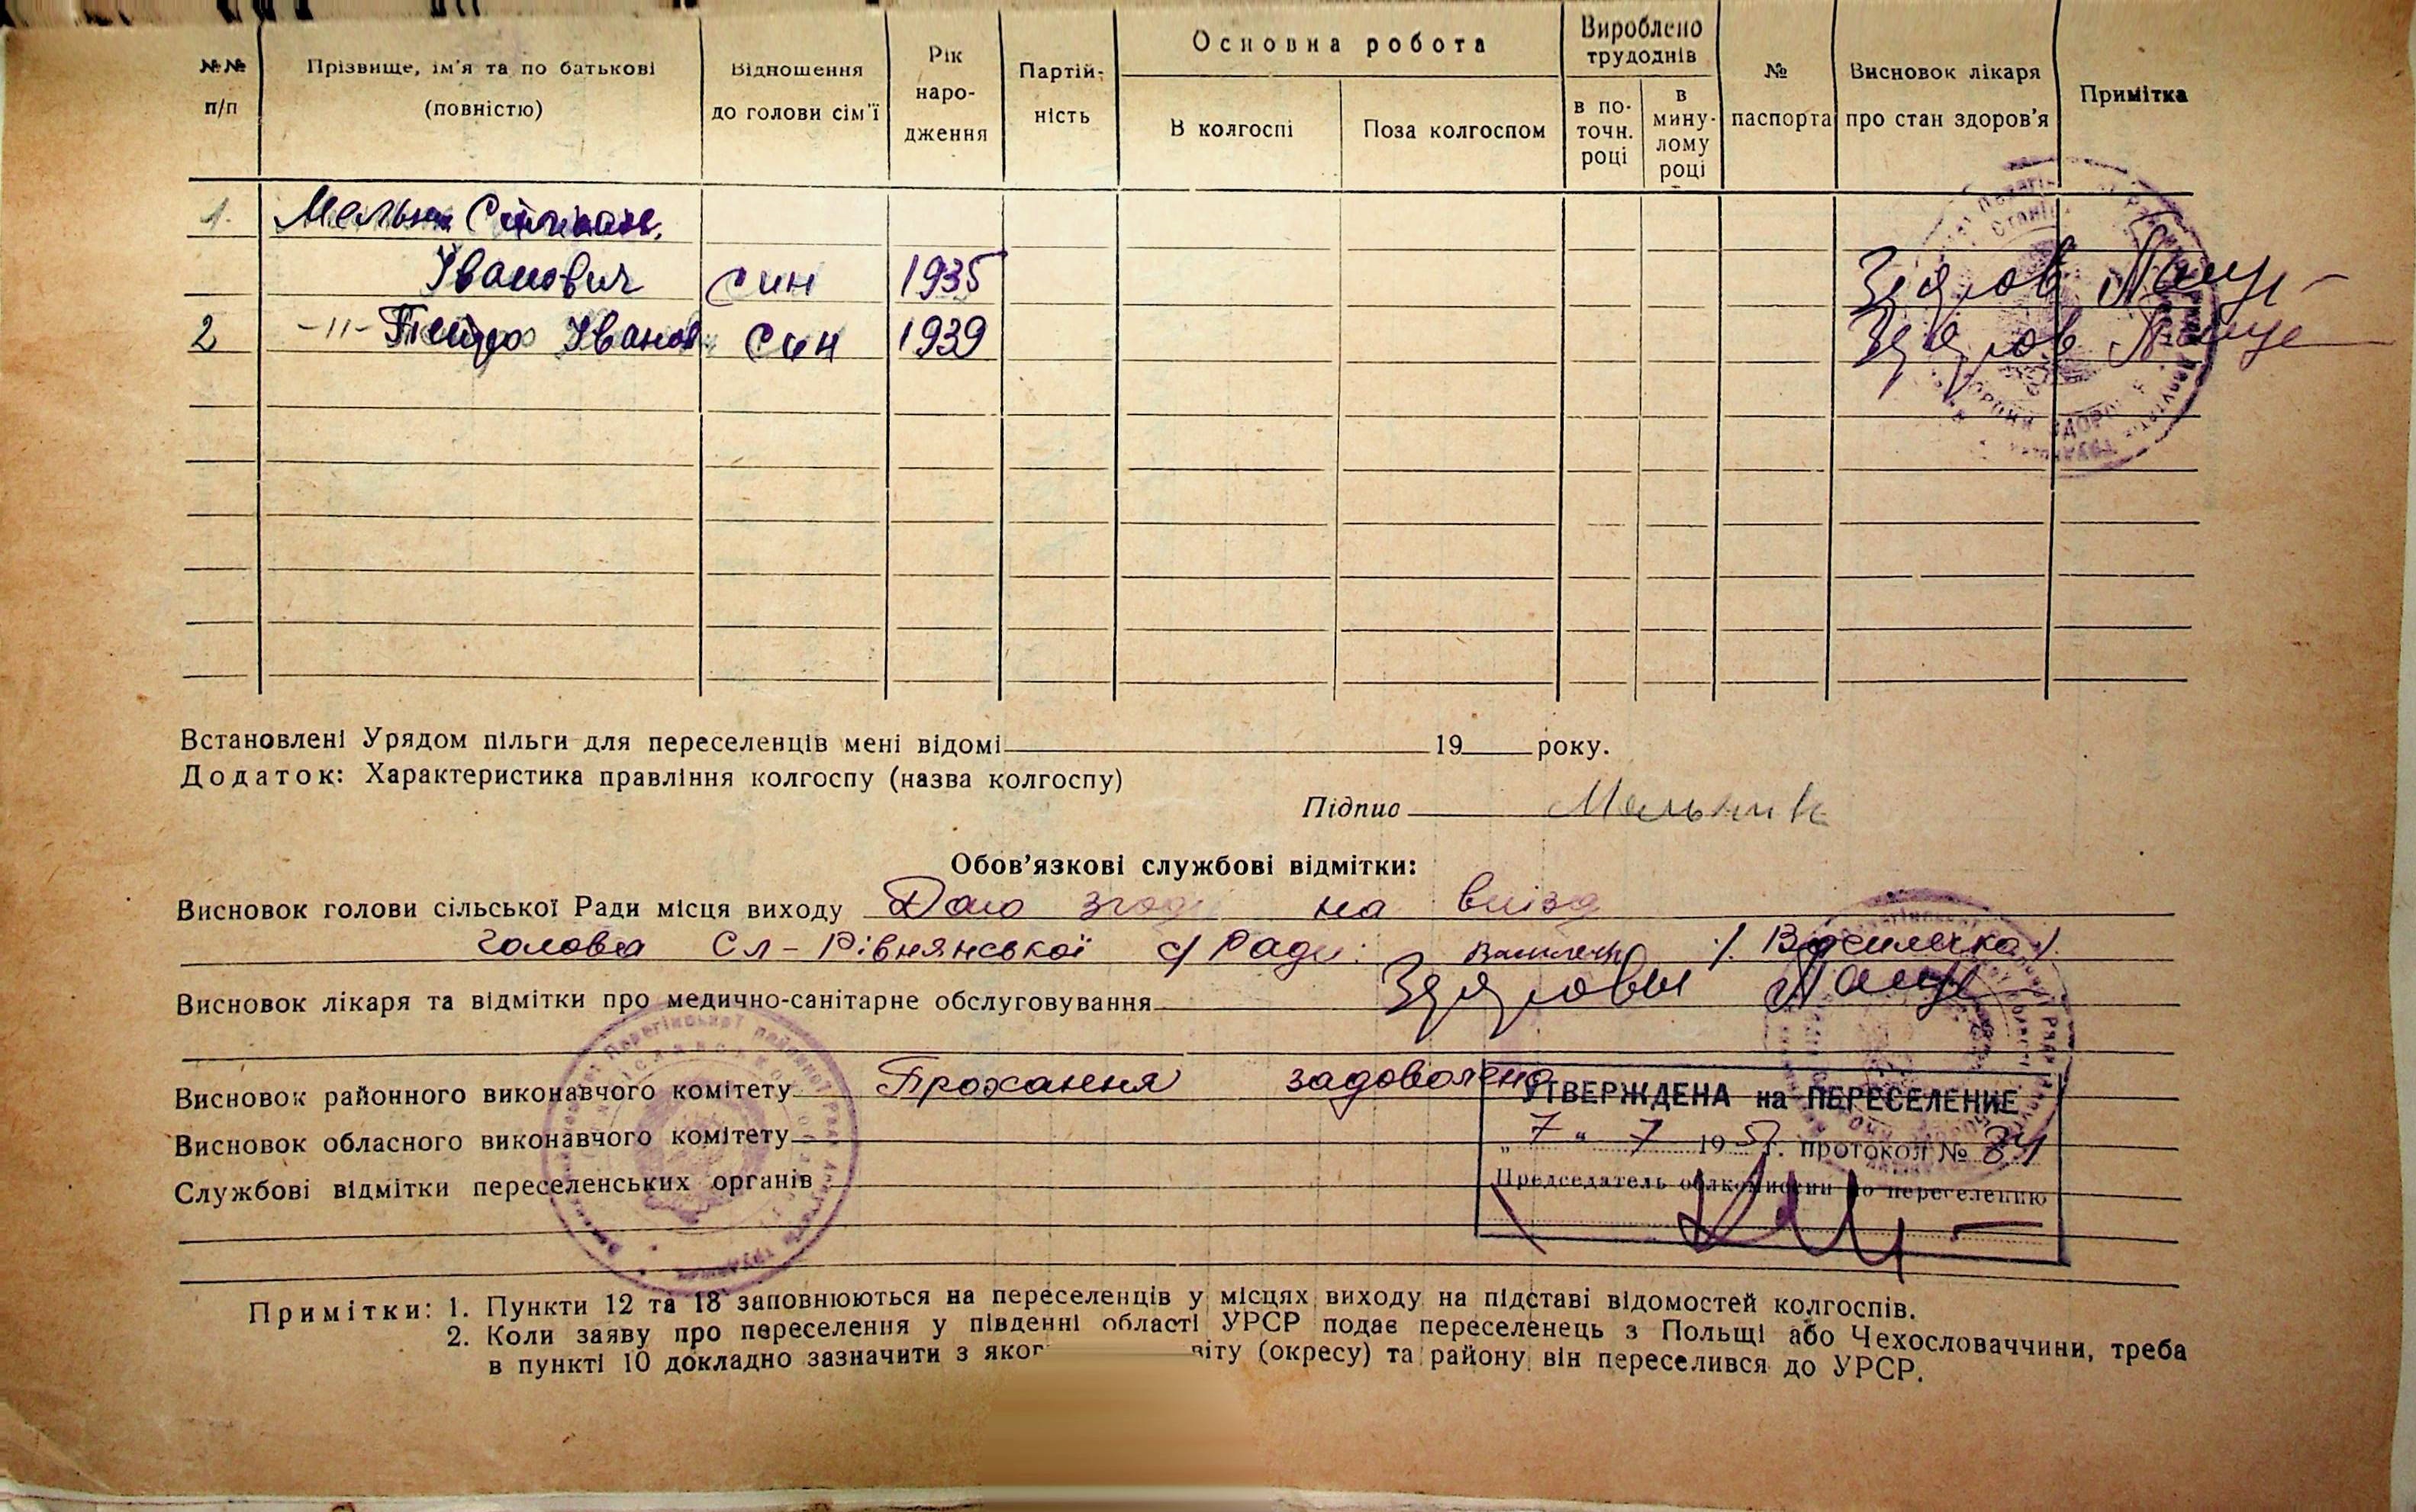 №№ п/п
Прізвище, ім'я та по батькові (повністю)
Відношення до голови сім'ї
Рік наро-дження
Партій-ність
Основна робота
В колгоспі
Поза колгоспом
Вироблено трудоднів
в по-точн. році
в мину-лому році
№ паспорта
Висновок лікаря про стан здоров'я
Примітка
1. Мельник Степан
Іванович син 1935 Здоров
2 -"- Петро Іванов син 1939 Здоров
Встановлені Урядом пільги для переселенців мені відомі 19 року.
Додаток: Характеристика правління колгоспу (назва колгоспу)
Підпис Мельник
Обов'язкові службові відмітки:
Висновок голови сільської Ради місця виходу Даю згоду на виїзд
голова Сл-Рівнянської с/Ради:
Висновок лікаря та відмітки про медично-санітарне обслуговування Здорові
Висновок районного виконавчого комітету Прохання задоволено
УТВЕРЖДЕНА на ПЕРЕСЕЛЕНИЕ
Висновок обласного виконавчого комітету
„7“ 7 195 г. протокол №
Службові відмітки переселенських органів
Председатель облкомиссии по переселению
Примітки: 1. Пункти 12 та 18 заповнюються на переселенців у місцях виходу на підставі відомостей колгоспів.
2. Коли заяву про переселення у південні області УРСР подає переселенець з Польщі або Чехословаччини, треба
в пункті 10 докладно зазначити з яког віту (окресу) та району він переселився до УРСР.